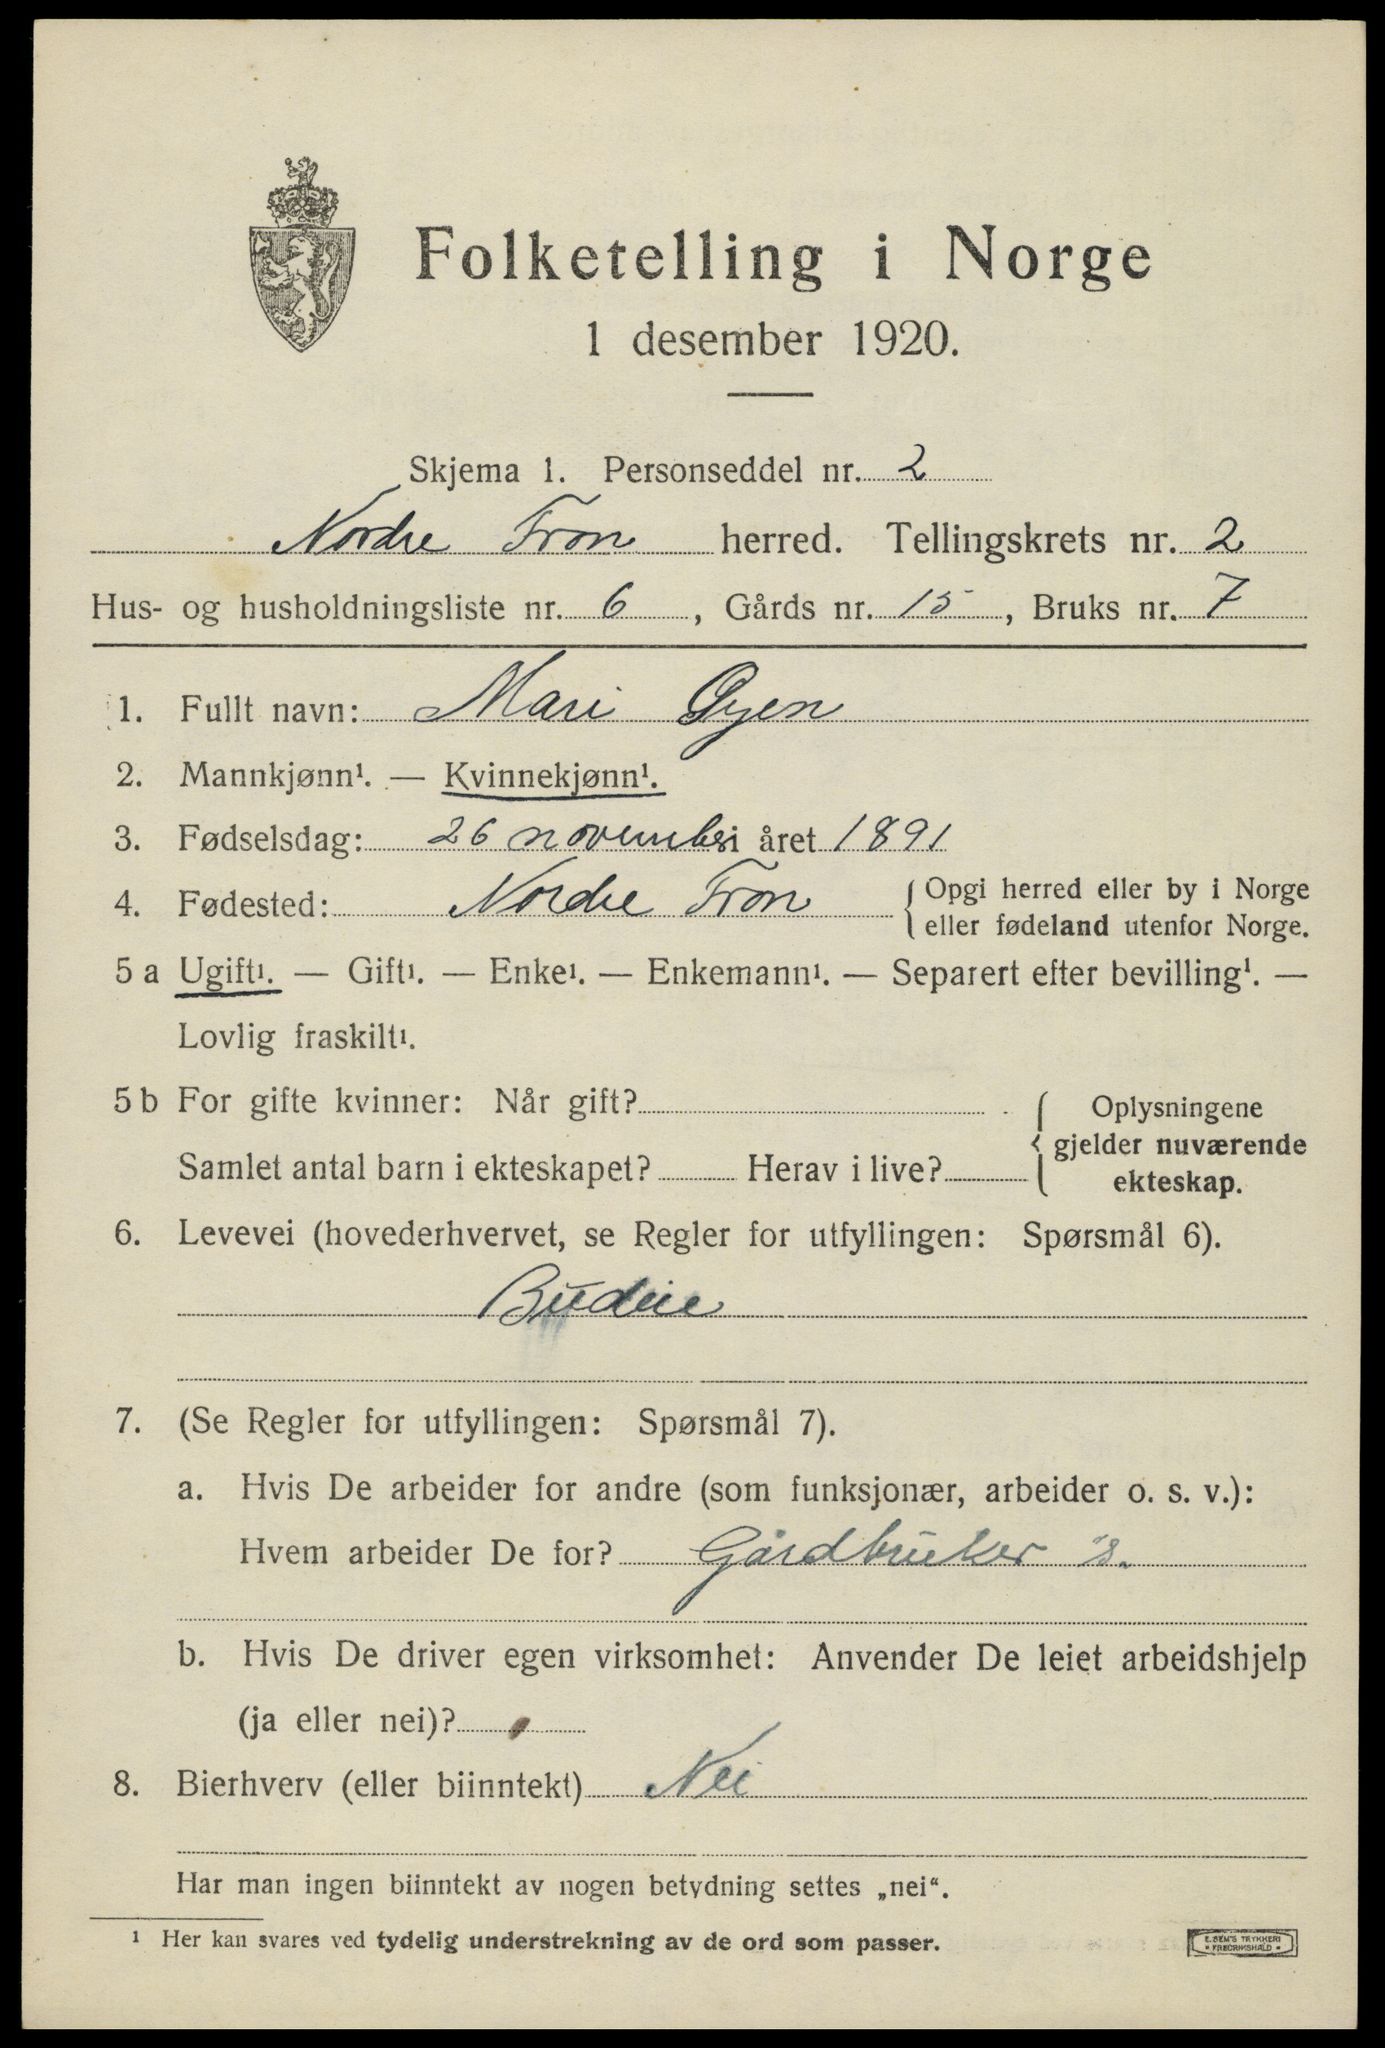 Folketelling i Norge
1 desember 1920.
Skjema 1. Personseddel nr. 2
Nordre Fron herred. Tellingskrets nr. 2
Hus- og husholdningsliste nr. 6, Gårds nr. 15, Bruks nr. 7
1. Fullt navn: Mari Øyen
2. Mannkjønn¹. — Kvinnekjønn¹.
3. Fødselsdag: 26 november i året 1891
4. Fødested: Nordre Fron { Opgi herred eller by i Norge
eller fødeland utenfor Norge.
5 a Ugift¹. — Gift¹. — Enke¹. — Enkemann¹. — Separert efter bevilling¹. —
Lovlig fraskilt¹.
5 b For gifte kvinner: Når gift?
Oplysningene
gjelder nuværende
ekteskap.
Samlet antal barn i ekteskapet? Herav i live?
6. Levevei (hovederhvervet, se Regler for utfyllingen: Spørsmål 6).
Budeie
7. (Se Regler for utfyllingen: Spørsmål 7).
a. Hvis De arbeider for andre (som funksjonær, arbeider o. s. v.):
Hvem arbeider De for? Gårdbruker
b. Hvis De driver egen virksomhet: Anvender De leiet arbeidshjelp
(ja eller nei)?
8. Bierhverv (eller biinntekt) Nei
Har man ingen biinntekt av nogen betydning settes „nei“.
¹ Her kan svares ved tydelig understrekning av de ord som passer.
E. SEM'S TRYKKERI
• FREDRIKSHALD •